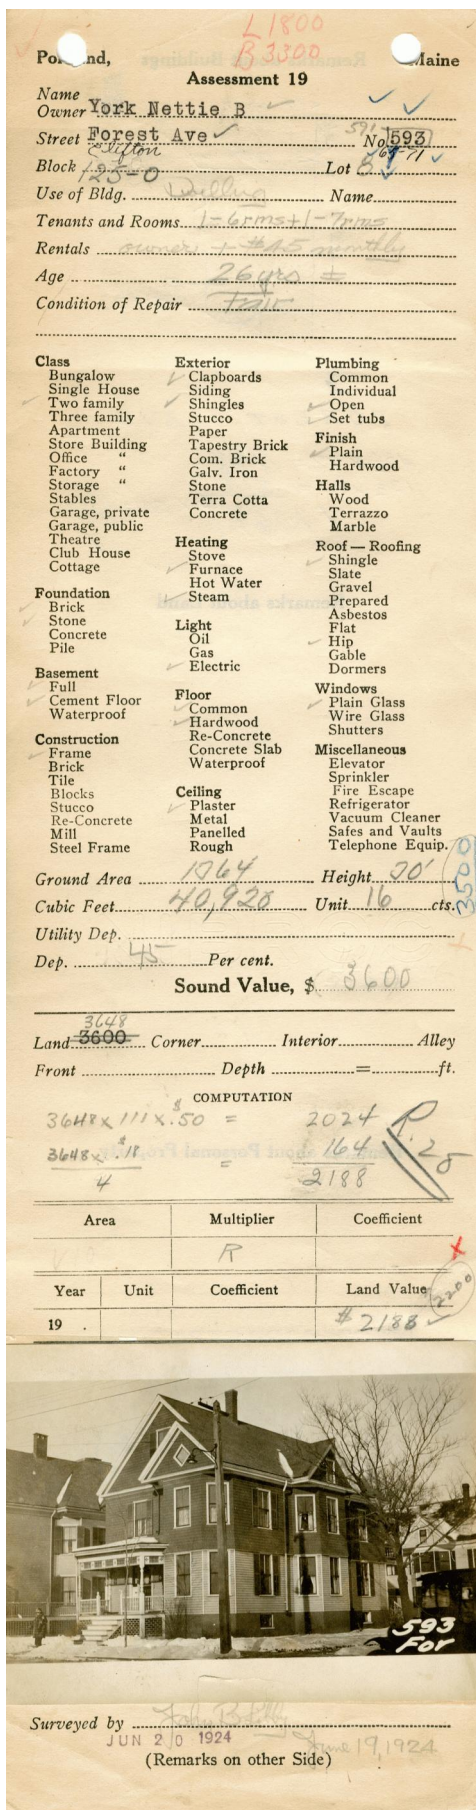 L 1800
B 3300
Portland, Maine
Assessment 19
Name
Owner York Nettie B
Street Forest Ave 591 No 593
Clifton 69-71
Block 125-O Lot 8
Use of Bldg. Dwelling Name
Tenants and Rooms 1-6rms+1-7rms
Rentals owner + #45 monthly
Age 26yrs ±
Condition of Repair Fair
Class
Bungalow
Single House
Two family
Three family
Apartment
Store Building
Office "
Factory "
Storage "
Stables
Garage, private
Garage, public
Theatre
Club House
Cottage
Foundation
Brick
Stone
Concrete
Pile
Basement
Full
Cement Floor
Waterproof
Construction
Frame
Brick
Tile
Blocks
Stucco
Re-Concrete
Mill
Steel Frame
Exterior
Clapboards
Siding
Shingles
Stucco
Paper
Tapestry Brick
Com. Brick
Galv. Iron
Stone
Terra Cotta
Concrete
Heating
Stove
Furnace
Hot Water
Steam
Light
Oil
Gas
Electric
Floor
Common
Hardwood
Re-Concrete
Concrete Slab
Waterproof
Ceiling
Plaster
Metal
Panelled
Rough
Plumbing
Common
Individual
Open
Set tubs
Finish
Plain
Hardwood
Halls
Wood
Terrazzo
Marble
Roof — Roofing
Shingle
Slate
Gravel
Prepared
Asbestos
Flat
Hip
Gable
Dormers
Windows
Plain Glass
Wire Glass
Shutters
Miscellaneous
Elevator
Sprinkler
Fire Escape
Refrigerator
Vacuum Cleaner
Safes and Vaults
Telephone Equip.
3500
Ground Area 1364 Height 30'
Cubic Feet 40,920 Unit 16 cts.
Utility Dep.
Dep. 45 Per cent.
Sound Value, $ 3600
3648
Land 3600 Corner Interior Alley
Front Depth = ft.
COMPUTATION
3648 x 111 x $.50 = 2024
3648 x $.18 = 164
4 2188
R. 25
Area Multiplier Coefficient
R
Year Unit Coefficient Land Value
2200
19 . $ 2188
593
For
Surveyed by
JUN 20 1924 June 19, 1924
(Remarks on other Side)